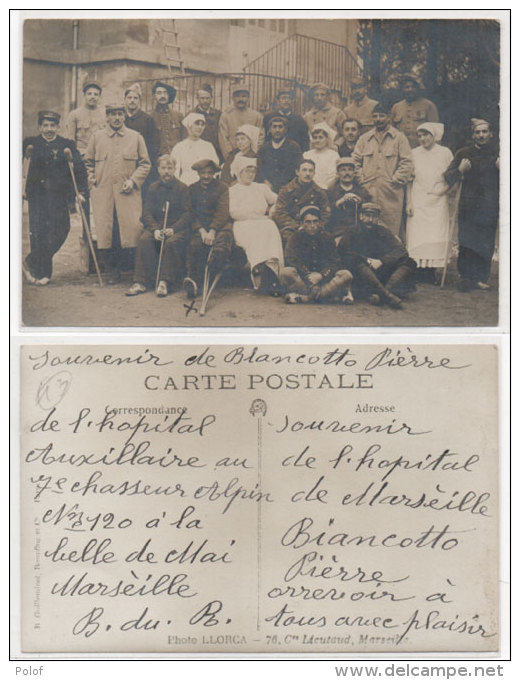 x
souvenir de Biancotto Pièrre
CARTE POSTALE
13
Correspondance
Adresse
de l'hopital
Auxillaire au
7e chasseur Alpin
No 120 à la
belle de Mai
Marsèille
B. du. R.
souvenir
de l'hopital
de Marsèille
Biancotto
Pièrre
orrevoir à
tous avec plaisir
Photo LLORCA – 76, Crs Lieutaud, Marseille.
Polof
www.delcampe.net